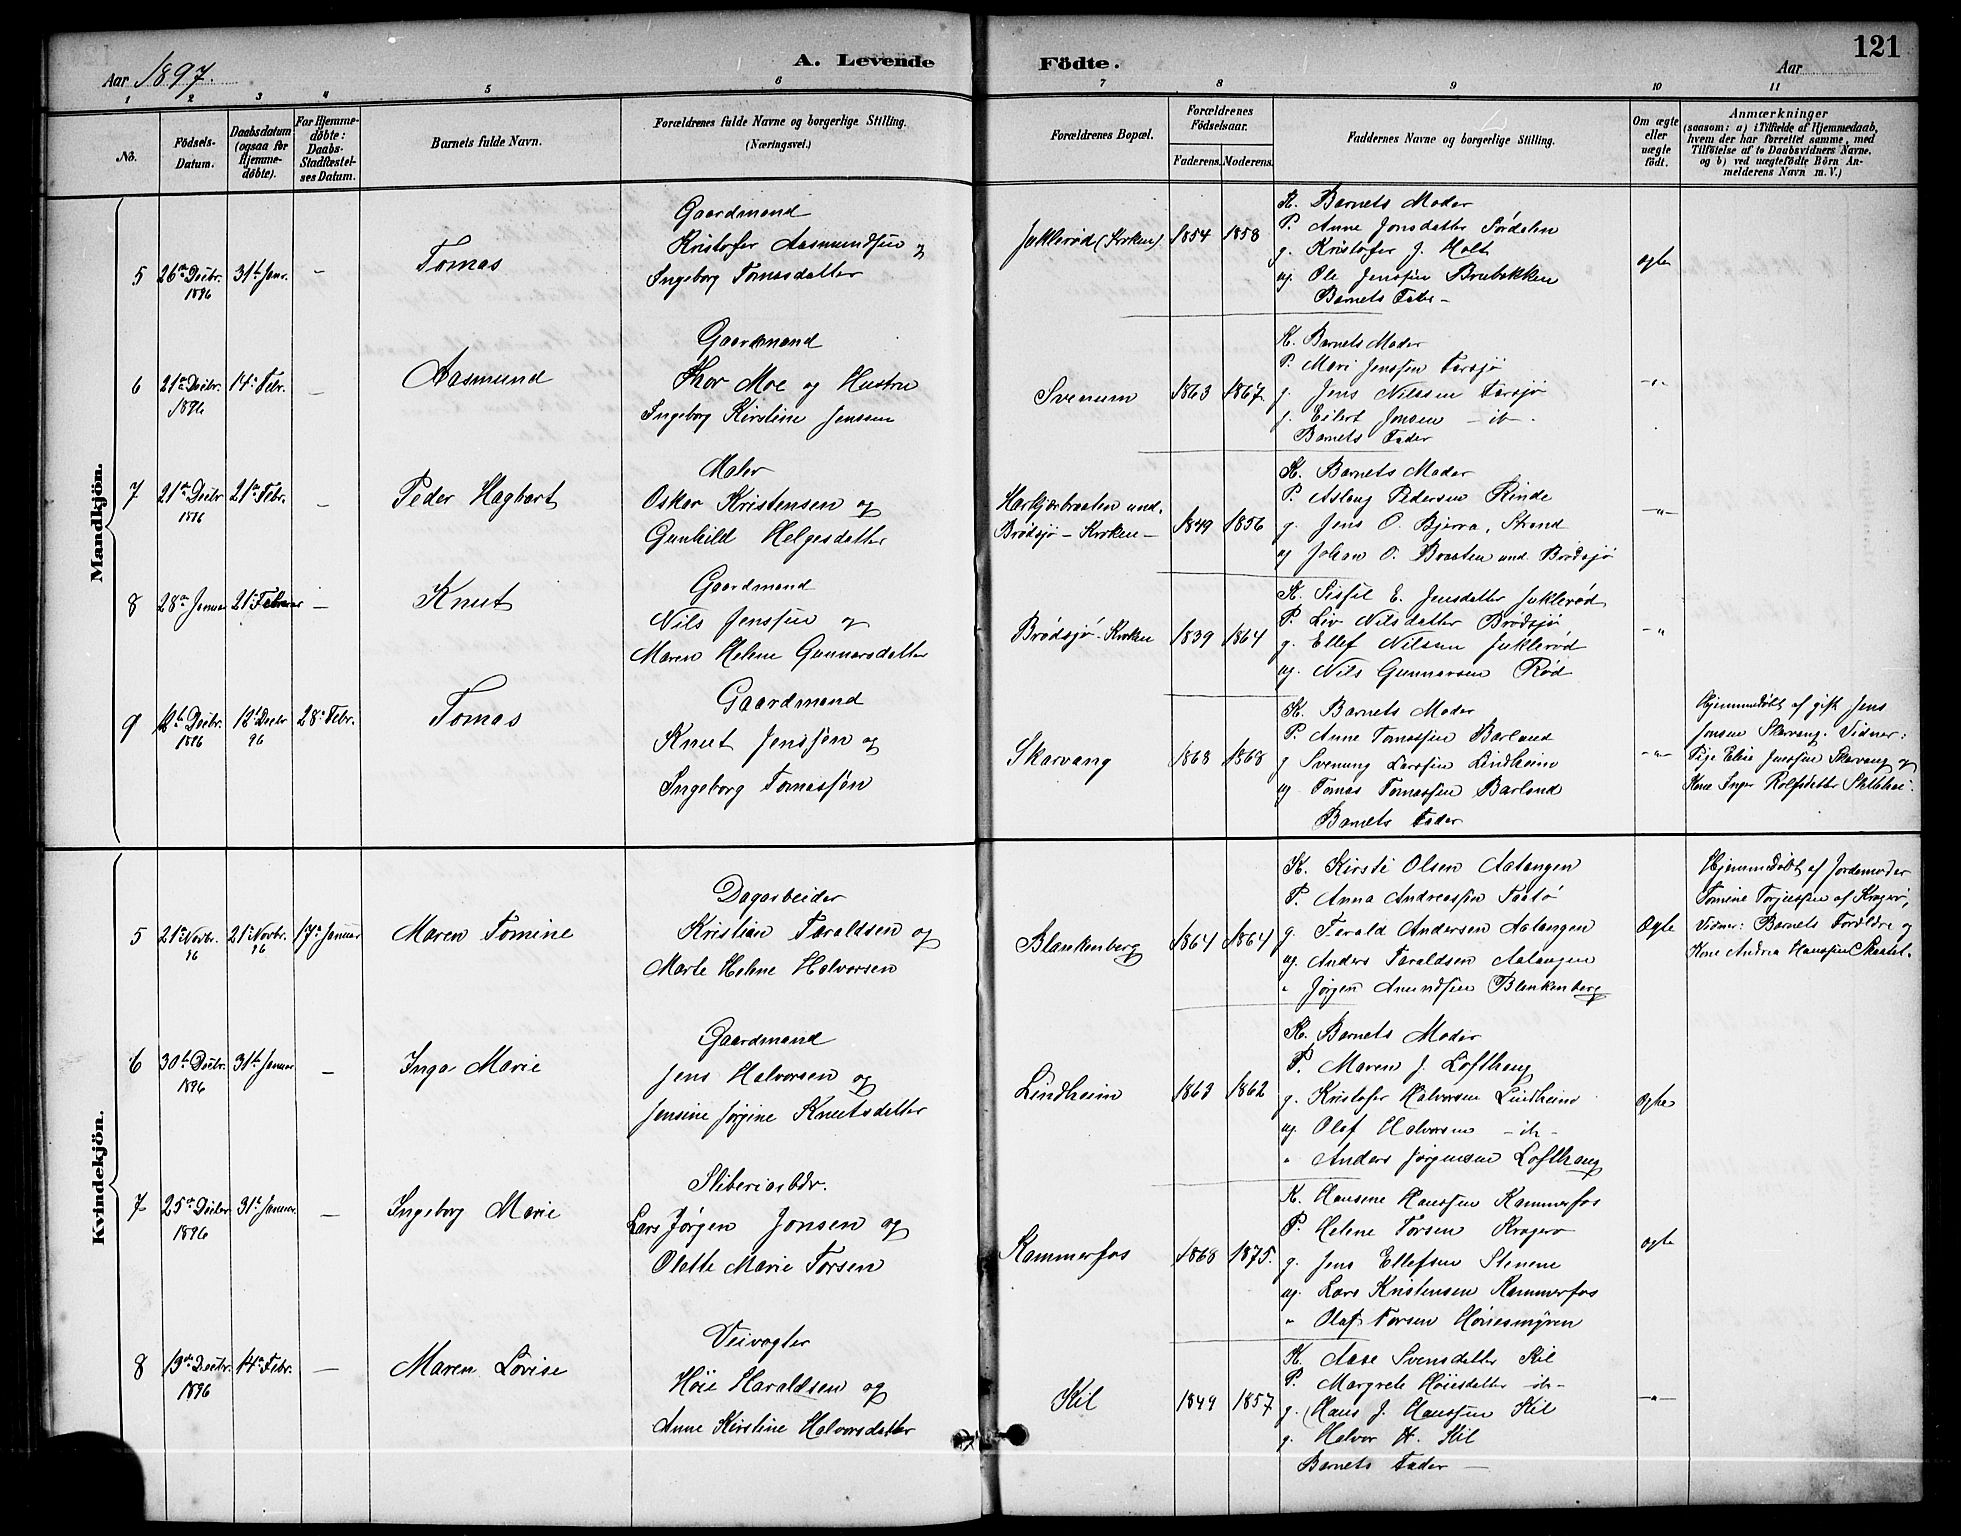 121
Aar 1897.
A. Levende Födte.
Aar
1 2 3 4 5 6 7 8 9 10 11
No.
Födsels-Datum.
Daabsdatum (ogsaa for Hjemme-döbte).
For Hjemme-döbte: Daabs-Stadfæstel-ses Datum.
Barnets fulde Navn.
Forældrenes fulde Navne og borgerlige Stilling.
(Næringsvei.)
Forældrenes Bopæl.
Forældrenes Födselsaar.
Faderens. Moderens.
Faddernes Navne og borgerlige Stilling.
Om ægte eller uægte födt.
Anmærkninger
(saasom: a) i Tilfælde af Hjemmedaab,
hvem der har forrettet samme, med
Tilföielse af to Daabsvidners Navne,
og b) ved uægtefödte Börn An-
melderens Navn m. V.)
Mandkjön.
5 26de Decbr. 1896 31te Janr. – Tomas
Gaardmand
Kristofer Aasmundsen og
Ingeborg Tomasdatter
Juklerød (Kroken) 1854 1858
K. Barnets Moder
P. Anne Jonsdatter Sørdalen
g. Kristofer J. Holt
ug. Ole Jenssen Brubekken
Barnets Fader –
ægte
6 21de Decbr. 1896 14de Febr. – Aasmund
Gaardmand
Thor Moe og Hustru
Ingeborg Kirstine Jensen
Svenum 1863 1867
K. Barnets Moder
P. Mari Jenssen Farsjø
g. Jens Nilssen Farsjø
g. Eilert Jonsen – ib –
Barnets Fader
–"–
7 21de Decbr 1896 21de Febr. – Peder Hagbart
Maler
Oskar Kristensen og
Gunhild Helgesdatter
Brødsjø – Kroken – 1849 1856
K. Barnets Moder
P. Aslaug Pedersen Rinde
g. Jens O. Bjerva, Strand
ug Johan O. Braaten und. Brødsjø
–"–
8 28de Januar 21de Februar – Knut
Gaardmand
Nils Jenssen og
Maren Helene Gunnarsdatter
Brødsjø – Kroken 1839 1864
K. Sissil E. Jensdatter Juklerød
P. Liv Nilsdatter Brødsjø
g. Ellef Nilssen Juklerød
ug. Nils Gunnarsen Rød
–"
9 12te Decbr. 1896 12te Decbr 96 28de Febr. Tomas
Gaardmand
Knut Jenssøn og
Ingeborg Tomassøn
Skarvang 1868 1868
K. Barnets Moder
P. Anne Tomassen Barland
g Svenung Larssen Lindheim
ug Tomas Tomassen Barland
Barnets Fader
–"–
Hjemmedøbt af gift Jens
Jensen Skarvang. Vidner:
Pige Elise Jenssen Skarvang og
Kone Inger Rolfsdatter
Kvindekjön.
5 21de Novbr. 96 21de Novbr. 96 17de Januar Maren Tomine
Dagarbeider
Kristian Taraldsen og
Marte Helene Halvorsen
Blankenberg 1864 1864
K. Kirsti Olsen Aatangen
P. Anna Andreassen Taatø
g. Tarald Andersen Aatangen
ug. Anders Taraldsen Aatangen
" Jørgen Amundsen Blankenberg
Ægte
Hjemmedøbt af Jordemoder
Tomine Torjussen af Kragerø,
Vidner: Barnets Forældre og
Kone Andrea Hanssen Skaatø.
6 30te Decbr. 1896 31te Januar – Inga Marie
Gaardmand
Jens Halvorsen og
Jensine Jørgine Knutsdatter
Lindheim 1863 1862
K. Barnets Moder
P. Maren J. Lofthaug
g. Kristofer Halvorsen Lindheim
ug. Olaf Halvorsen – ib –
" Anders Jørgensen Lofthaug
ægte
7 25de Decbr 1896 31te Januar – Ingeborg Marie
Sliberiarbdr.
Lars Jørgen Jonsen og
Olette Marie Torsen
Kammerfos 1868 1875.
K. Hansine Hanssen Kammerfos
P. Helene Torsen Kragerø
g. Jens Ellefsen Stenene
ug. Lars Kristensen Kammerfos
" Olaf Torsen Hønesmyren
ægte
8 19de Decbr. 1896 14de Febr. – Maren Lovise
Veivogter
Høie Haraldsen og
Anne Kirstine Halvorsdatter
Kil 1849 1857
K. Aase Svensdatter Kil
P. Margrete Høiesdatter – ib –
g. Hans J. Hanssen Kil
g. Halvor H. Kil
Barnets Fader –
–"–